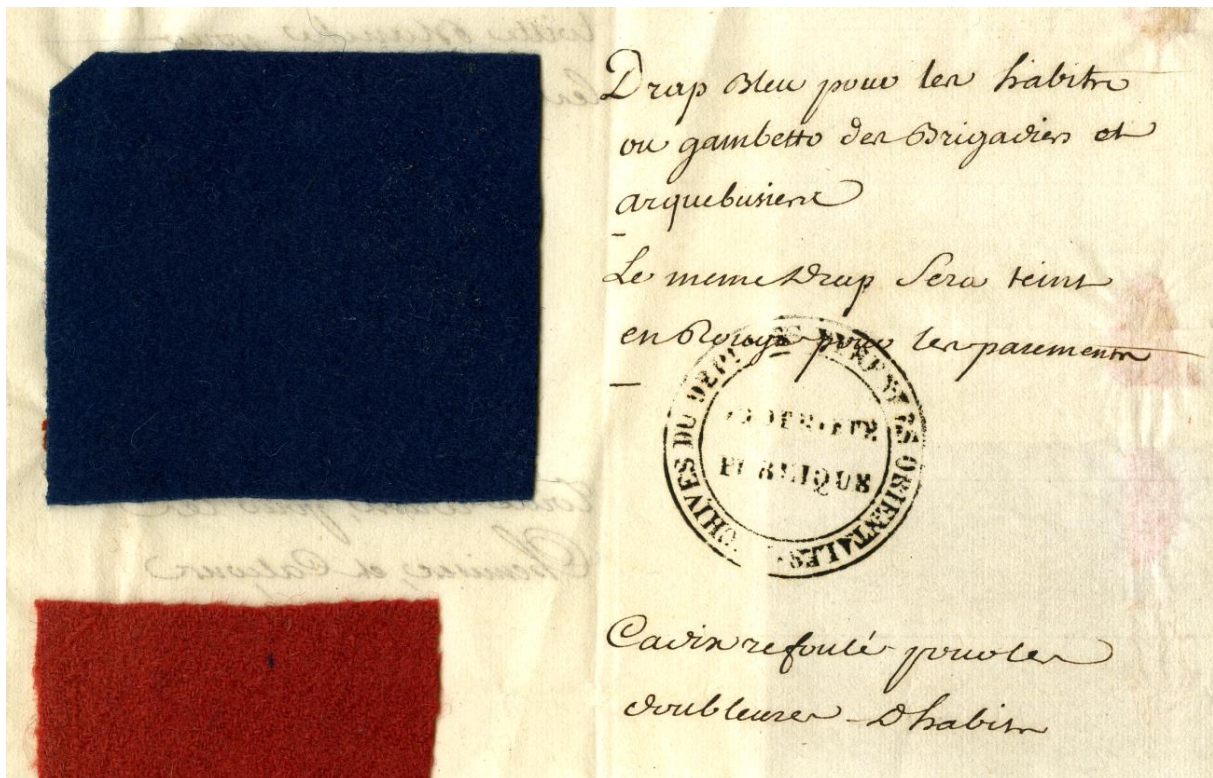 Drap Bleu pour les habits
ou gambetto des Brigadiers et
arquebusiers
Le meme Drap Sera teint
en Rouge pour les parements
ARCHIVES DU DÉPT DES PYRÉNÉES ORIENTALES
PROPRIÉTÉ
PUBLIQUE
Cadix refoulé pour les
doubleures D'habits